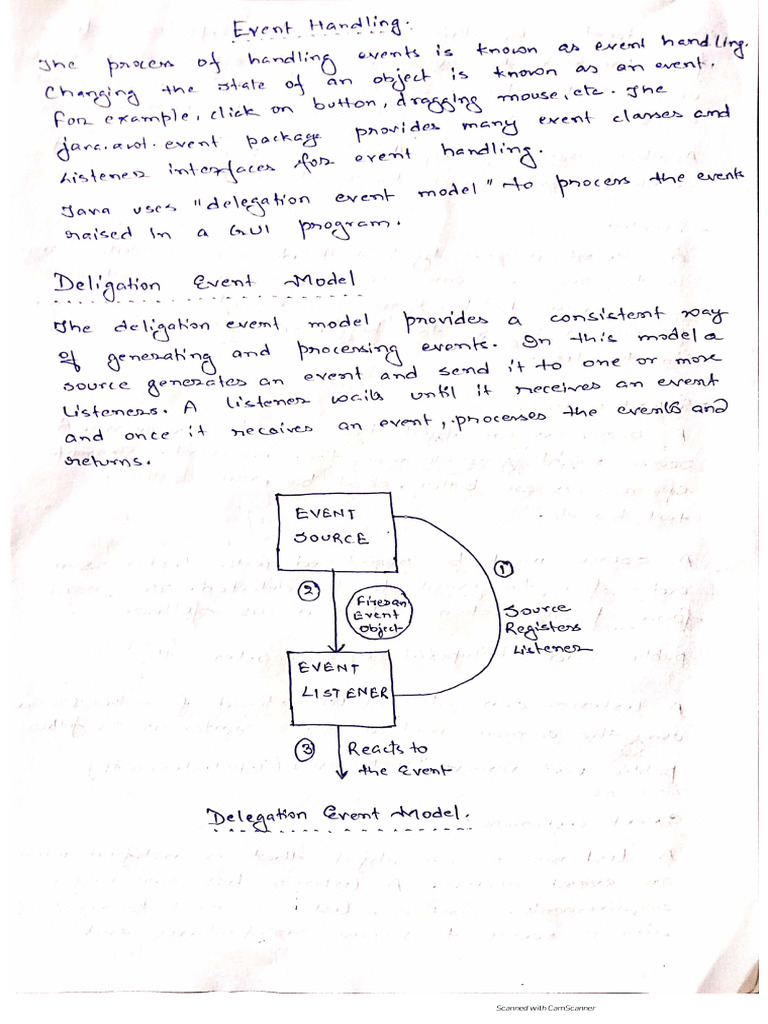 Event Handling.
The process of handling events is known as event handling.
Changing the state of an object is known as an event.
For example, click on button, dragging mouse, etc. The
java.awt.event package provides many event classes and
Listener interfaces for event handling.
Java uses "delegation event model" to process the events
raised in a GUI program.
Deligation Event Model
The deligation event model, provides a consistent way
of generating and processing events. In this model a
source generates an event and send it to one or more
Listeners. A listener waits until it receives an event
and once it receives an event, processes the events and
returns.
EVENT
SOURCE
1
2
Fires an
Event
Object
Source
Registers
Listener
EVENT
LISTENER
3 Reacts to
the Event
Delegation Event Model.
Scanned with CamScanner